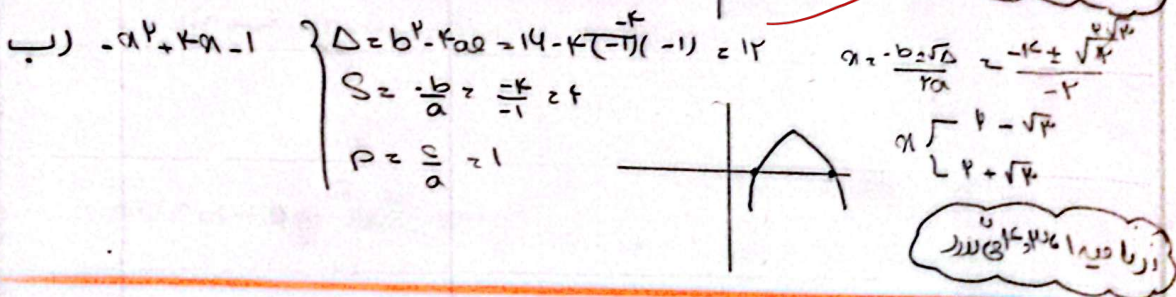 ب) -x²+۴x-۱
Δ = b²-۴ac = ۱۶-۴(-۱)(-۱) = ۱۲
-۴
S = -b/a = -۴/-۱ = ۴
P = c/a = ۱
x = -b±√Δ/۲a = -۴±√۱۲/-۲
۲√۳
x
۲-√۳
۲+√۳